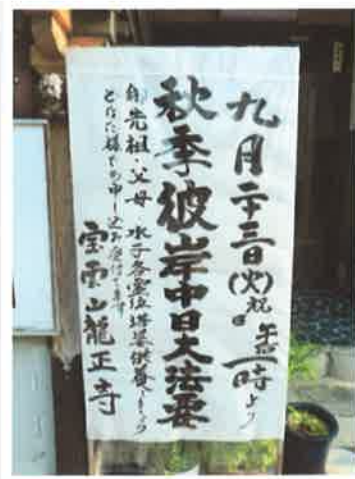 九月二十三日(火)祝日 午后一時より
秋季彼岸中日大法要
御先祖・父母・水子各霊位塔婆供養
どなた様でもお申し込み受付ます
宝雲山龍正寺